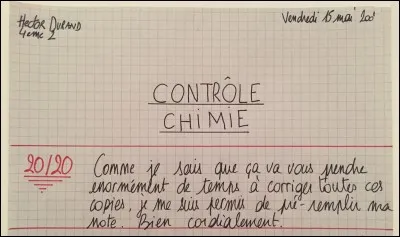 Hector DURAND
4eme 2
Vendredi 15 mai 200
CONTRÔLE
CHIMIE
20/20
Comme je sais que ça va vous prendre
enormément de temps à corriger toutes ces
copies, je me suis permis de pré-remplir ma
note. Bien cordialement.